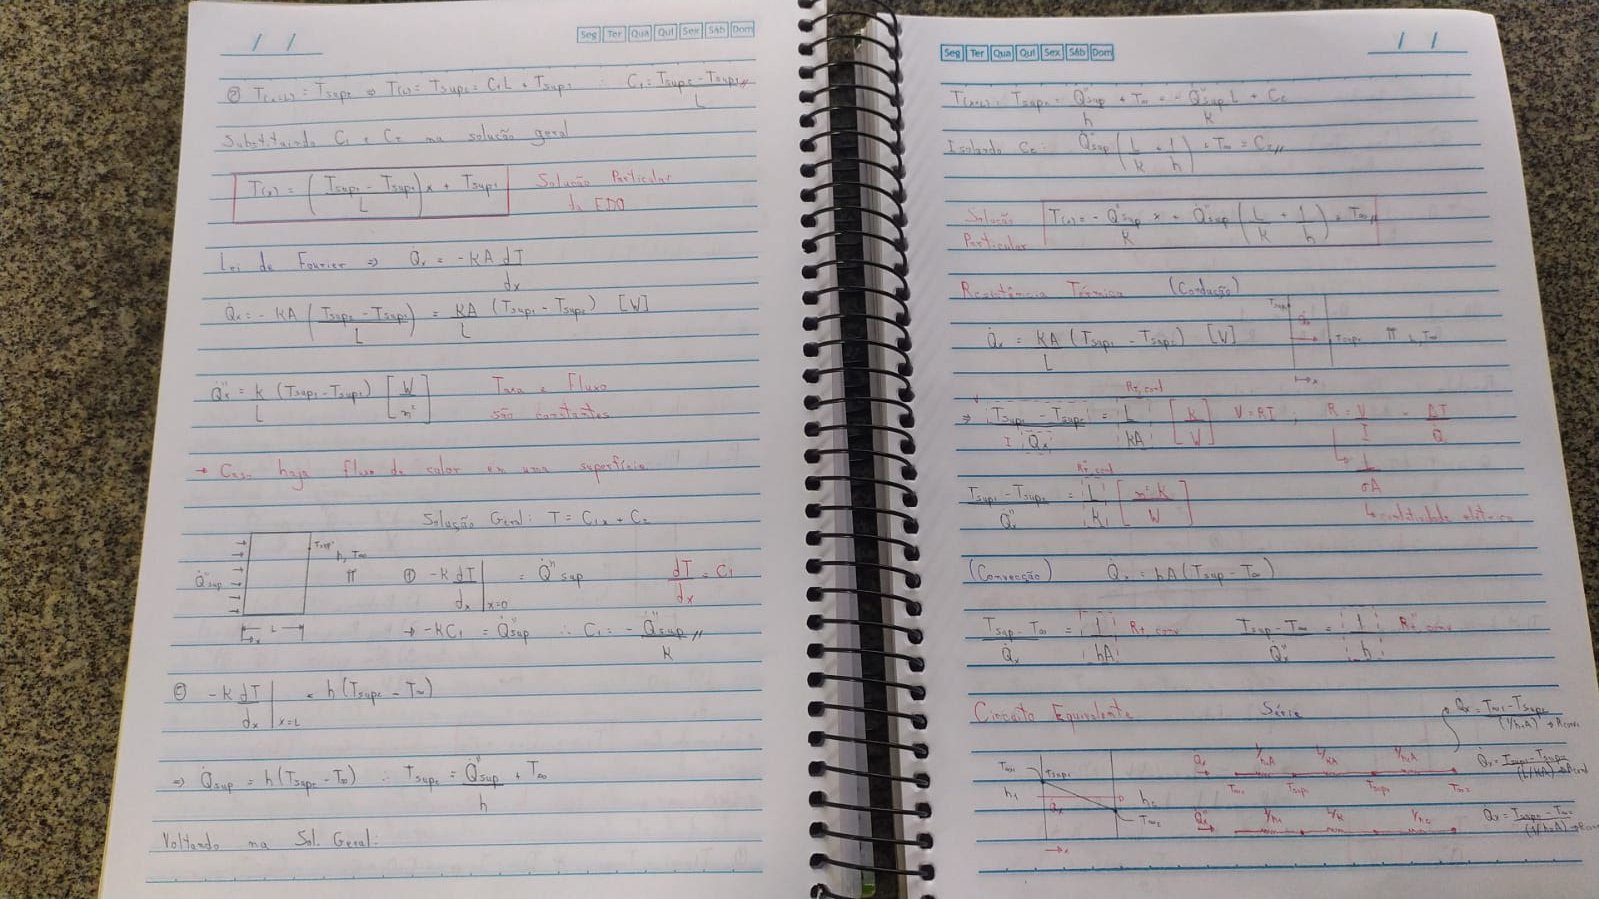 Seg Ter Qua Qui Sex Sáb Dom
② T(x=L) = Tsup2 ⇒ T(L) = Tsup2 = C1L + Tsup1 ∴ C1 = (Tsup2 - Tsup1)/L //
Substituindo C1 e C2 na solução geral
T(x) = ((Tsup2 - Tsup1)/L) x + Tsup1 Solução Particular
da EDO
Lei de Fourier ⇒ Q̇x = -kA dT/dx
Q̇x = -kA ((Tsup2 - Tsup1)/L) = kA/L (Tsup1 - Tsup2) [W]
Q̇x" = k/L (Tsup1 - Tsup2) [W/m²] Taxa e Fluxo
são constantes
→ Caso haja fluxo de calor em uma superfície
Solução Geral: T = C1x + C2
Q̇"sup Tsup2 h, T∞
① -k dT/dx |x=0 = Q̇"sup dT/dx = C1
x L
→ -kC1 = Q̇"sup ∴ C1 = - Q̇"sup/k //
② -k dT/dx |x=L = h(Tsup2 - T∞)
⇒ Q̇sup = h(Tsup2 - T∞) ∴ Tsup2 = Q̇"sup/h + T∞
Voltando na Sol. Geral:
Seg Ter Qua Qui Sex Sáb Dom
T(x=L) = Tsup2 = Q̇"sup/h + T∞ = - Q̇"sup/k L + C2
Isolando C2: Q̇"sup (L/k + 1/h) + T∞ = C2 //
Solução
Particular
T(x) = - Q̇"sup/k x + Q̇"sup (L/k + 1/h) + T∞ //
Resistência Térmica (Condução)
Q̇x = kA/L (Tsup1 - Tsup2) [W]
Tsup1 Q̇x Tsup2 h, T∞
x
Rt, cond
⇒ V (Tsup1 - Tsup2)/ I Q̇x = L/kA [K/W] V = RI ; R = V/I = ΔT/Q̇
Rt", cond
(Tsup1 - Tsup2)/Q̇x" = L/k [m²K/W] L/σA
↳ condutividade elétrica
(Convecção) Q̇x = hA(Tsup - T∞)
(Tsup - T∞)/Q̇x = 1/hA Rt, conv (Tsup - T∞)/Q̇x" = 1/h Rt", conv
Circuito Equivalente Série
Q̇x = (T∞1 - Tsup1)/(1/h1A) → Rconv
T∞1 Tsup1 h1 Q̇x h2 T∞2 x
Q̇x 1/h1A L/kA 1/h2A
T∞1 Tsup1 Tsup2 T∞2
Q̇x = (Tsup1 - Tsup2)/(L/kA) → Rcond
Q̇x" 1/h1 L/k 1/h2
Q̇x = (Tsup2 - T∞2)/(1/h2A) → Rconv